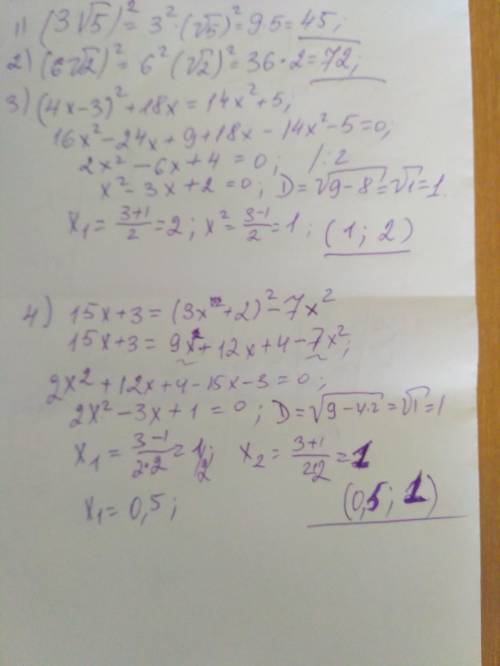 1) (3√5)² = 3²·(√5)² = 9·5 = 45;
2) (6√2)² = 6²(√2)² = 36·2 = 72;
3) (4x-3)²+18x = 14x²+5;
16x²-24x+9+18x-14x²-5=0;
2x²-6x+4=0; /:2
x²-3x+2=0; D=√9-8=√1=1.
x₁=(3+1)/2=2; x²=(3-1)/2=1; (1; 2)
4) 15x+3=(3x+2)²-7x²
15x+3=9x²+12x+4-7x²;
2x²+12x+4-15x-3=0;
2x²-3x+1=0; D=√9-4·2=√1=1
x₁=(3-1)/(2·2)=1/2; x₂=(3+1)/(2·2)=1
x₁=0,5; (0,5; 1)